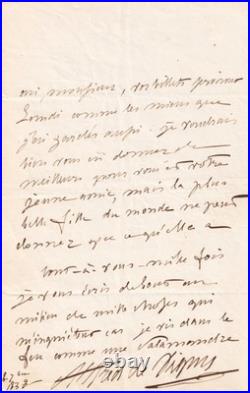 oui, monsieur, vos billets
Lundi comme les miens que
j'ai gardés aussi. je voudrais
bien vous en donner de
meilleurs pour vous et votre
jeune amie, mais la plus
belle fille du monde ne peut
donner que ce qu'elle a
tout-à-vous - mille fois
je vous écris debout au
milieu de mille choses qui
m'inquiètent car je vis dans le
feu comme une salamandre
Alfred de Vigny